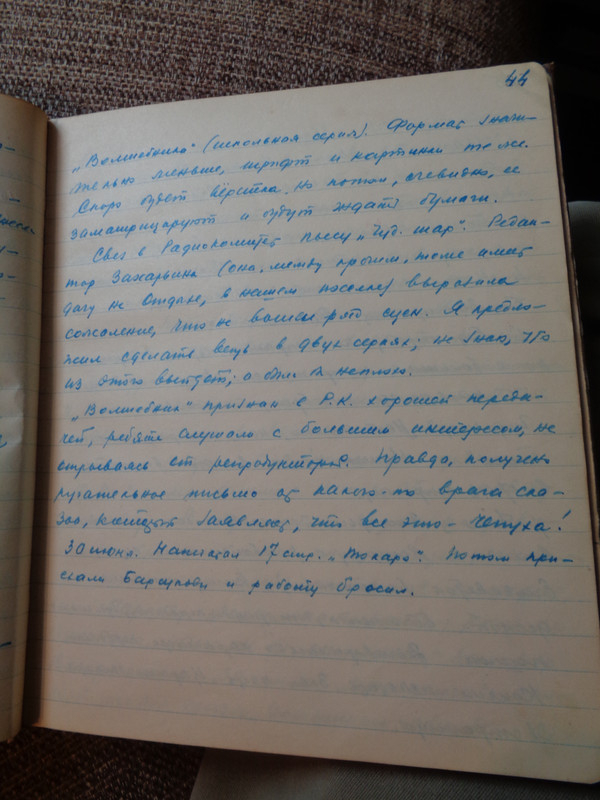 44
„Волшебника" (школьная серия). Формат значи-
тельно меньше, шрифт и картинки те же.
Скоро будет вёрстка. Но потом, очевидно, ее
заматрицируют и будут ждать бумаги.
Свез в Радиокомитет пьесу „Чуд. шар". Редак-
тор Захарьина (она, между прочим, тоже имеет
дачу не Отдыхе, в нашем поселке) выразила
сожаление, что не вошел ряд сцен. Я предло-
жил сделать вещь в двух сериях; не знаю, что
из этого выйдет; а было б неплохо.
„Волшебник" признан в Р.К. хорошей переда-
чей, ребята слушали с большим интересом, не
отрываясь от репродукторов. Правда, получено
ругательное письмо от какого-то врага ска-
зок, который заявляет, что все это - чепуха!
30 июня. Напечатал 17 стр. „Токаря". Потом при-
ехали и работу бросил.